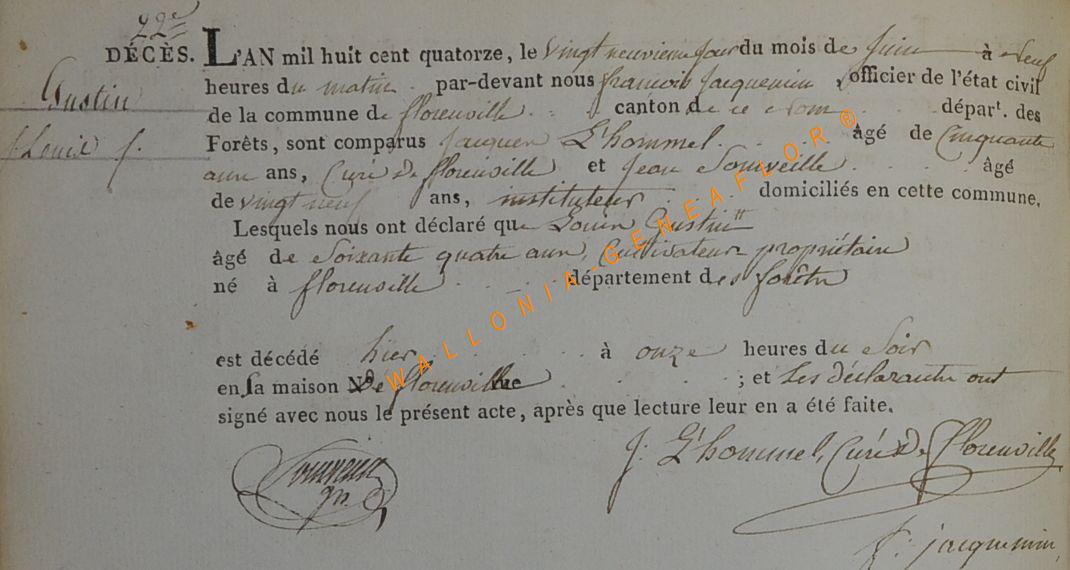 22e
DÉCÈS. L'AN mil huit cent quatorze, le vingt neuvieme jour du mois de juin à neuf
Gustin
heures du matin par-devant nous francois Jacquemin, officier de l'état civil
de la commune de florenville canton de ce nom départ. des
Louis f.
Forêts, sont comparus Jacques L'hommel âgé de Cinquante
ans ans, Curé de florenville et Jean âgé
de vingt neuf ans, instituteur domiciliés en cette commune,
Lesquels nous ont déclaré que Louis Gustin
âgé de soixante quatre ans, Cultivateur propriétaire
né à florenville département des forêts
est décédé hier à onze heures du soir
en sa maison No de florenville rue ; et Les déclarants ont
signé avec nous le présent acte, après que lecture leur en a été faite.
J. L'hommel, Curé de Florenville
f. jacquemin
WALLONIA-GENEAFLOR®